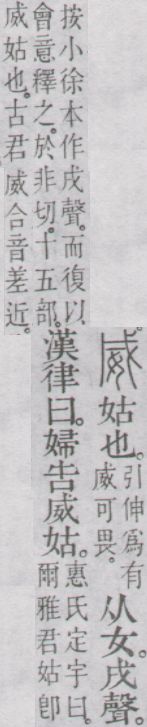 威姑也。引伸爲有
威可畏。从女。戌聲。
按小徐本作戌聲。而復以
會意釋之。於非切。十五部。
漢律曰。婦告威姑。惠氏定宇曰。
爾雅君姑卽
威姑也。古君威合音差近。